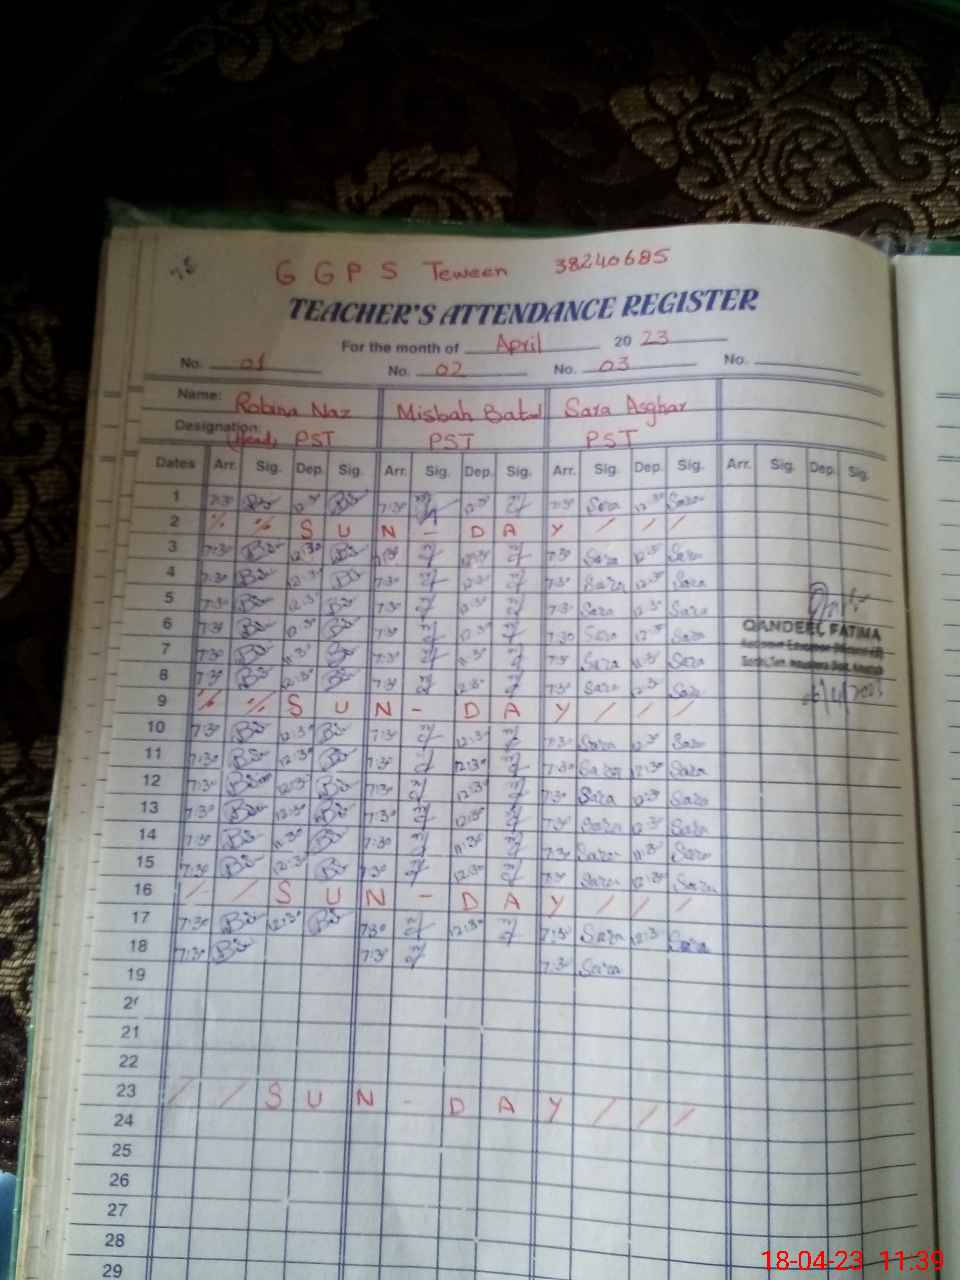 G G P S Teween 38240685
TEACHER'S ATTENDANCE REGISTER
For the month of April 2023
No. 01 No. 02 No. 03 No.
Name: Robina Naz Misbah Batool Sara Asghar
Designation: (Head) PST PST PST
Dates Arr. Sig. Dep. Sig. Arr. Sig. Dep. Sig. Arr. Sig. Dep. Sig. Arr. Sig. Dep. Sig.
1 7:30 12:30 7:30 12:30 7:30 Sara 12:30 Sara
2 S U N - D A Y / / /
3 7:30 12:30 7:30 12:30 7:30 Sara 12:30 Sara
4 7:30 12:30 7:30 12:30 7:30 Sara 12:30 Sara
5 7:30 12:30 7:30 12:30 7:30 Sara 12:30 Sara
6 7:30 12:30 7:30 12:30 7:30 Sara 12:30 Sara
QANDEEL FATIMA
7 7:30 11:30 7:30 11:30 7:30 Sara 11:30 Sara
8 7:30 12:30 7:30 12:30 7:30 Sara 12:30 Sara
9 S U N - D A Y / / /
10 7:30 12:30 7:30 12:30 7:30 Sara 12:30 Sara
11 7:30 12:30 7:30 12:30 7:30 Sara 12:30 Sara
12 7:30 12:30 7:30 12:30 7:30 Sara 12:30 Sara
13 7:30 12:30 7:30 12:30 7:30 Sara 12:30 Sara
14 7:30 11:30 7:30 11:30 7:30 Sara 11:30 Sara
15 7:30 12:30 7:30 12:30 7:30 Sara 12:30 Sara
16 / / S U N - D A Y / / /
17 7:30 12:30 7:30 12:30 7:30 Sara 12:30 Sara
18 7:30 7:30 7:30 Sara
19
20
21
22
23 / / S U N - D A Y / / /
24
25
26
27
28
29
18-04-23 11:39